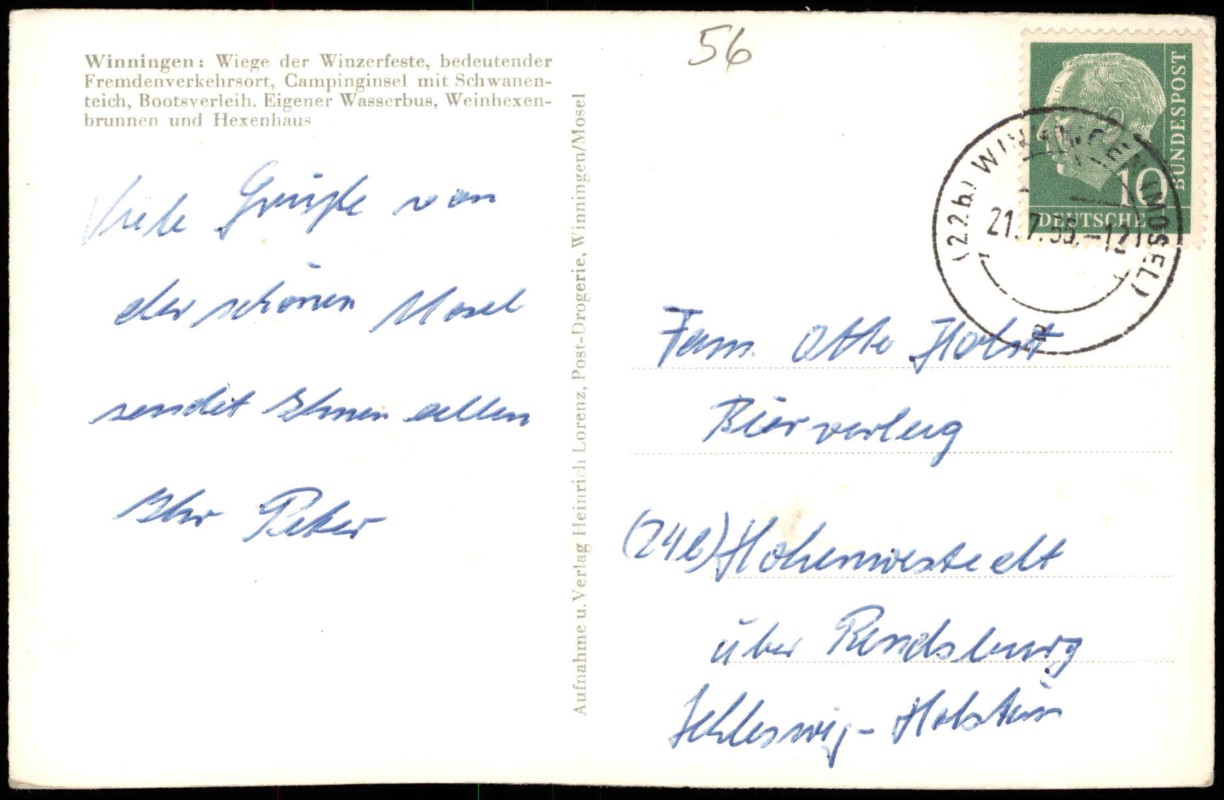 Winningen: Wiege der Winzerfeste, bedeutender
Fremdenverkehrsort, Campinginsel mit Schwanen-
teich, Bootsverleih. Eigener Wasserbus, Weinhexen-
brunnen und Hexenhaus
56
Viele Grüße von
der schönen Mosel
sendet Ihnen allen
Ihr Peter
Aufnahme u. Verlag Heinrich Lorenz, Post-Drogerie, Winningen/Mosel
BUNDESPOST
10
DEUTSCHE
(22b) WINNINGEN (MOSEL)
21.7.56.-12
a
Fam. Otto Holst
Bierverlag
(24b) Hohenwestedt
über Rendsburg
Schleswig-Holstein